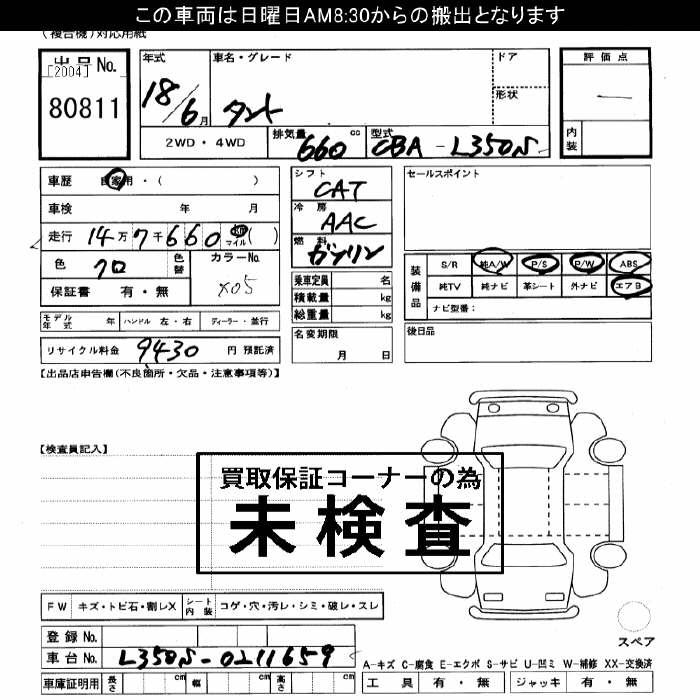 この車両は日曜日AM8:30からの搬出となります
(複合機)対応用紙
出品No. [2004] 80811
年式 18/6月
車名・グレード タント
ドア
形状
評価点 ―
内装
2WD・4WD
排気量 660 cc
型式 CBA-L350S
車歴 自家用・( )
車検 年 月
走行 14万7千660 km マイル ( )
色 クロ 色替 カラーNo. X05
保証書 有・無
シフト CAT
冷房 AAC
燃料 ガソリン
乗車定員 名
積載量 kg
総重量 kg
セールスポイント
装備品 S/R 純A/W P/S P/W ABS
純TV 純ナビ 革シート 外ナビ エアB
ナビ型番:
モデル年式 年 ハンドル 左・右 ディーラー・並行
名変期限 月 日
後日品
リサイクル料金 9430 円 預託済
【出品店申告欄(不良箇所・欠品・注意事項等)】
【検査員記入】
買取保証コーナーの為
未検査
FW キズ・トビ石・割レX シート内装 コゲ・穴・汚レ・シミ・破レ・スレ
スペア
登録No.
車台No. L350S-0211659
A-キズ C-腐食 E-エクボ S-サビ U-凹ミ W-補修 XX-交換済
車庫証明用 長さ cm 幅 cm 高さ cm
工具 有・無 ジャッキ 有・無